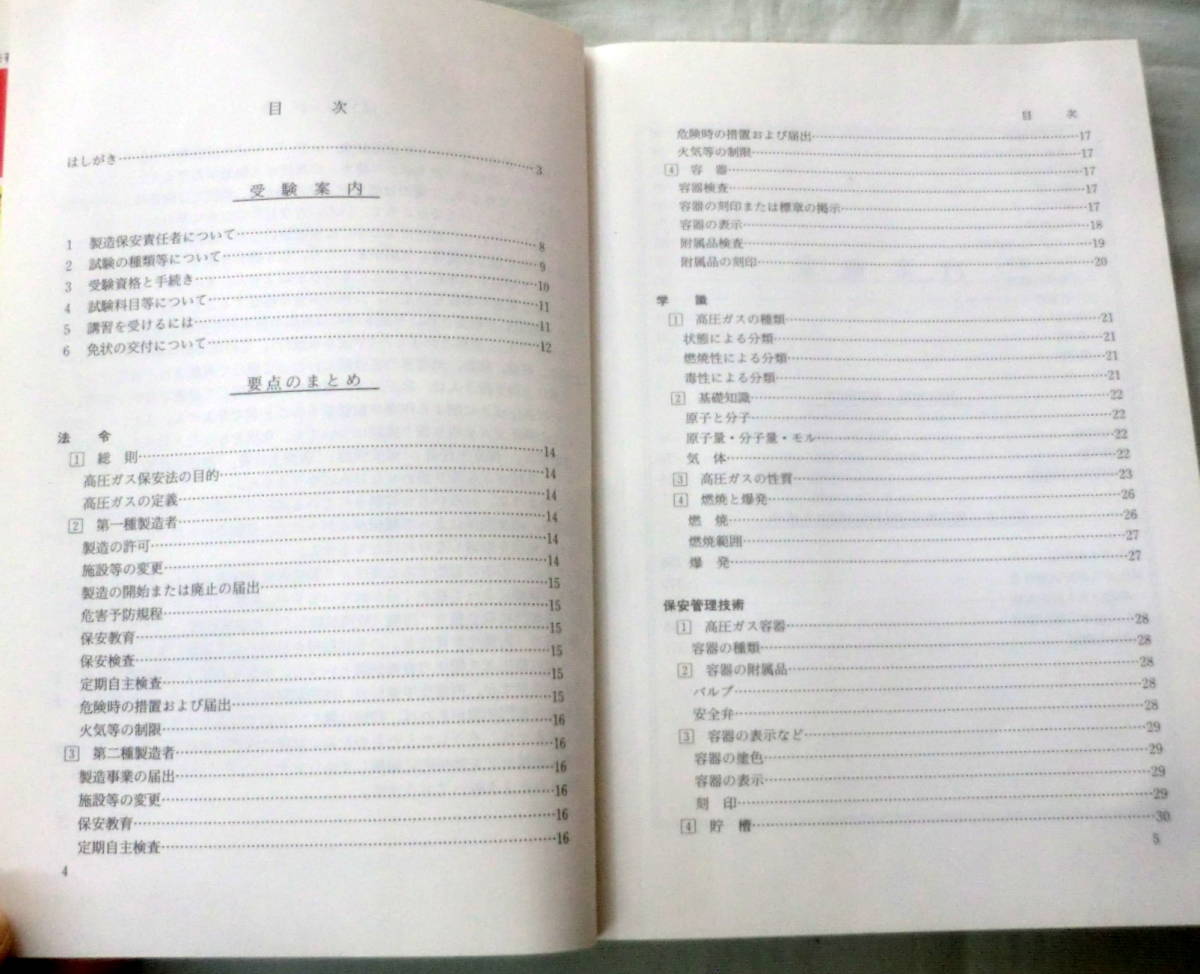 目　次
はしがき……3
受験案内
1 製造保安責任者について……8
2 試験の種類等について……9
3 受験資格と手続き……10
4 試験科目等について……11
5 講習を受けるには……11
6 免状の交付について……12
要点のまとめ
法　令
1 総　則……14
高圧ガス保安法の目的……14
高圧ガスの定義……14
2 第一種製造者……14
製造の許可……14
施設等の変更……14
製造の開始または廃止の届出……15
危害予防規程……15
保安教育……15
保安検査……15
定期自主検査……15
危険時の措置および届出……15
火気等の制限……16
3 第二種製造者……16
製造事業の届出……16
施設等の変更……16
保安教育……16
定期自主検査……16
4
目　次
危険時の措置および届出……17
火気等の制限……17
4 容　器……17
容器検査……17
容器の刻印または標章の掲示……17
容器の表示……18
附属品検査……19
附属品の刻印……20
学　識
1 高圧ガスの種類……21
状態による分類……21
燃焼性による分類……21
毒性による分類……21
2 基礎知識……22
原子と分子……22
原子量・分子量・モル……22
気　体……22
3 高圧ガスの性質……23
4 燃焼と爆発……26
燃　焼……26
燃焼範囲……27
爆　発……27
保安管理技術
1 高圧ガス容器……28
容器の種類……28
2 容器の附属品……28
バルブ……28
安全弁……28
3 容器の表示など……29
容器の塗色……29
容器の表示……29
刻　印……29
4 貯　槽……30
5